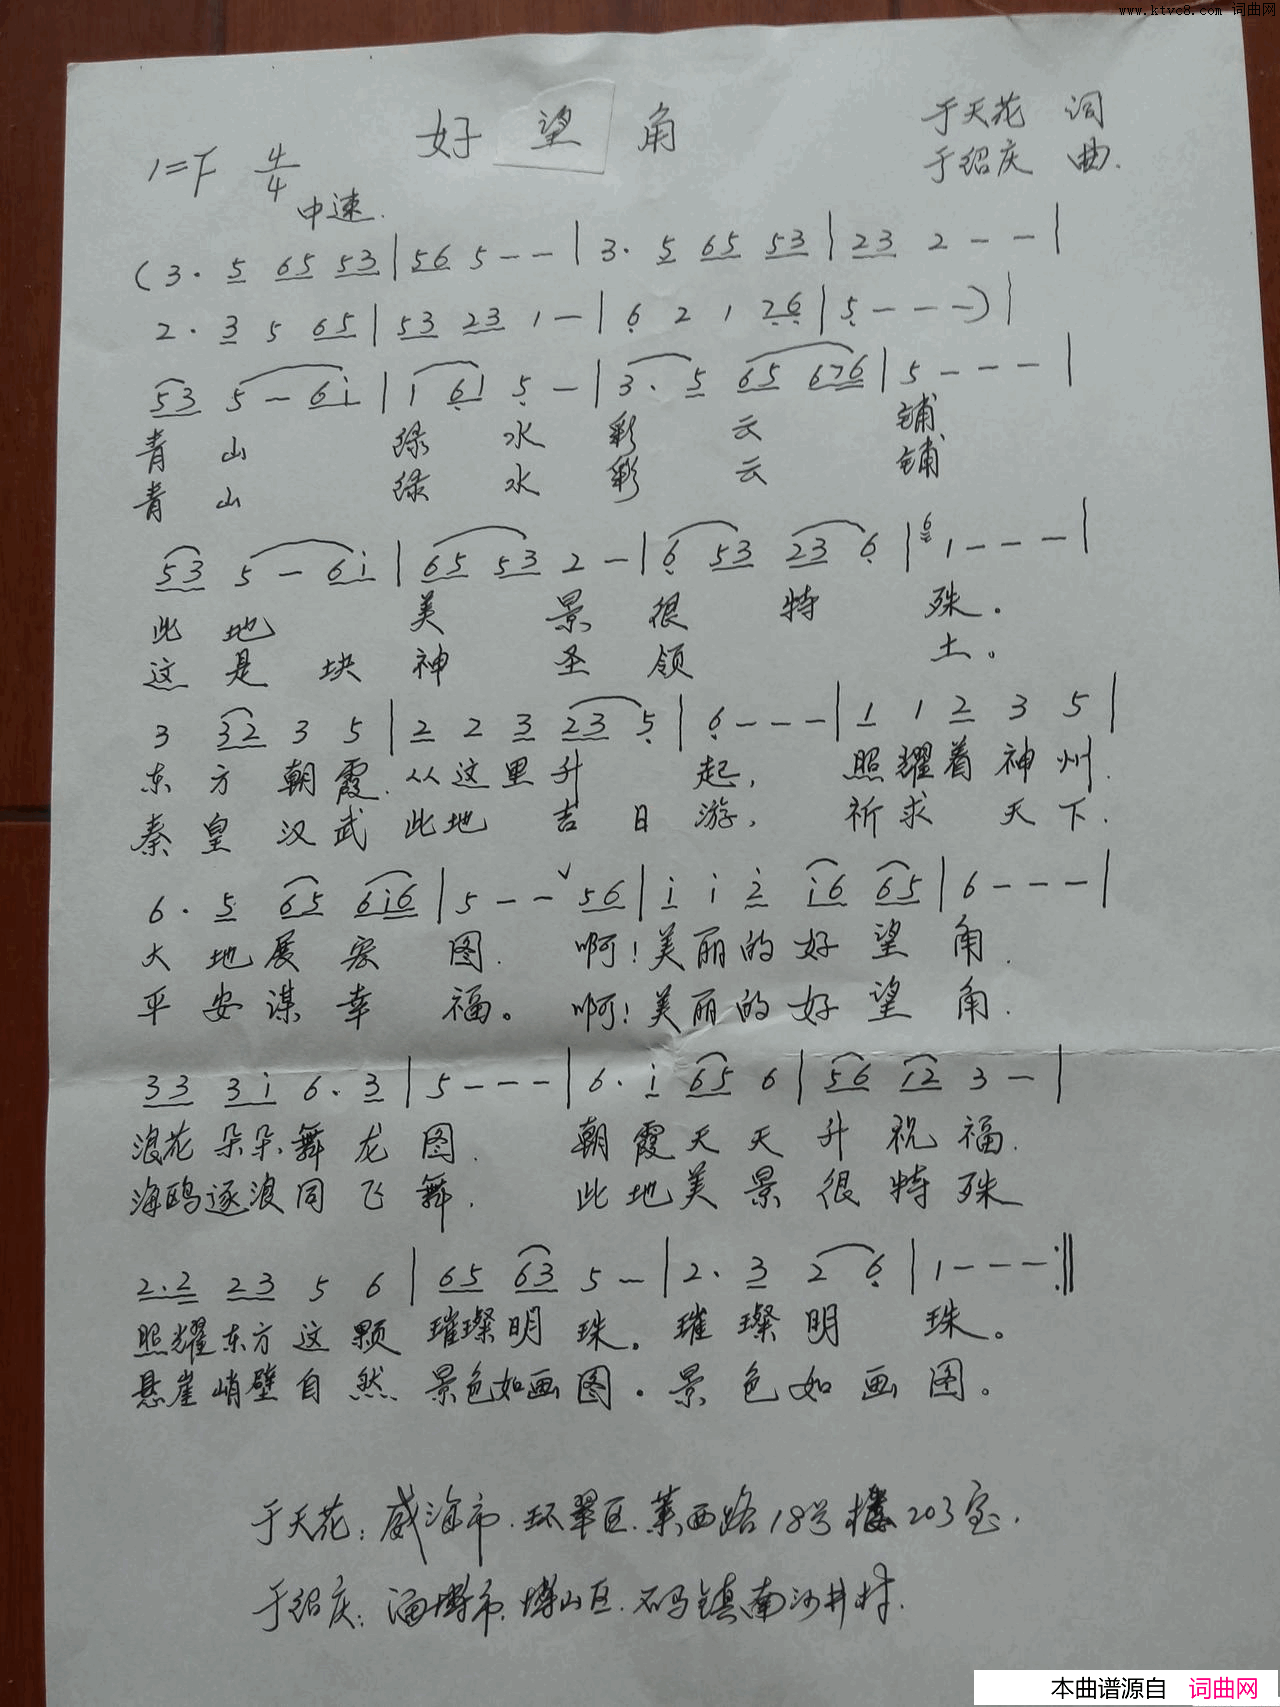 www.ktvc8.com 词曲网
好望角
于天花 词
1=F 4/4
于绍庆 曲.
中速.
(3· 5 65 53 | 56 5 - - | 3· 5 65 53 | 23 2 - - |
2· 3 5 65 | 53 23 1 - | 6 2 1 26 | 5 - - - ) |
53 5 - 6i | 1 61 5 - | 3· 5 65 676 | 5 - - - |
青山 绿水彩云 铺
青山 绿水彩云 铺
53 5 - 6i | 65 53 2 - | 6 53 23 6 | 6 1 - - - |
此地 美景很特殊。
这是块神圣领 土。
3 32 3 5 | 2 2 3 23 5 | 6 - - - | 1 1 2 3 5 |
东方朝霞.从这里升 起, 照耀着神州.
秦皇汉武此地 吉日游, 祈求 天下.
6· 5 65 6i6 | 5 - - ∨ 56 | i i 2 i6 65 | 6 - - - |
大地展宏图. 啊!美丽的好望角.
平安谋幸福。 啊!美丽的好望角.
33 3i 6· 3 | 5 - - - | 6· i 65 6 | 56 i2 3 - |
浪花朵朵舞龙图. 朝霞天天升祝福.
海鸥逐浪同飞舞. 此地美景很特殊
2·2 23 5 6 | 65 63 5 - | 2· 3 2 6 | 1 - - - :||
照耀东方这颗 璀璨明珠。璀璨明 珠。
悬崖峭壁自然 景色如画图。景色如画图。
于天花: 威海市.环翠区.莱西路18号楼203室.
于绍庆: 淄博市.博山区.石马镇南沙井村.
本曲谱源自 词曲网